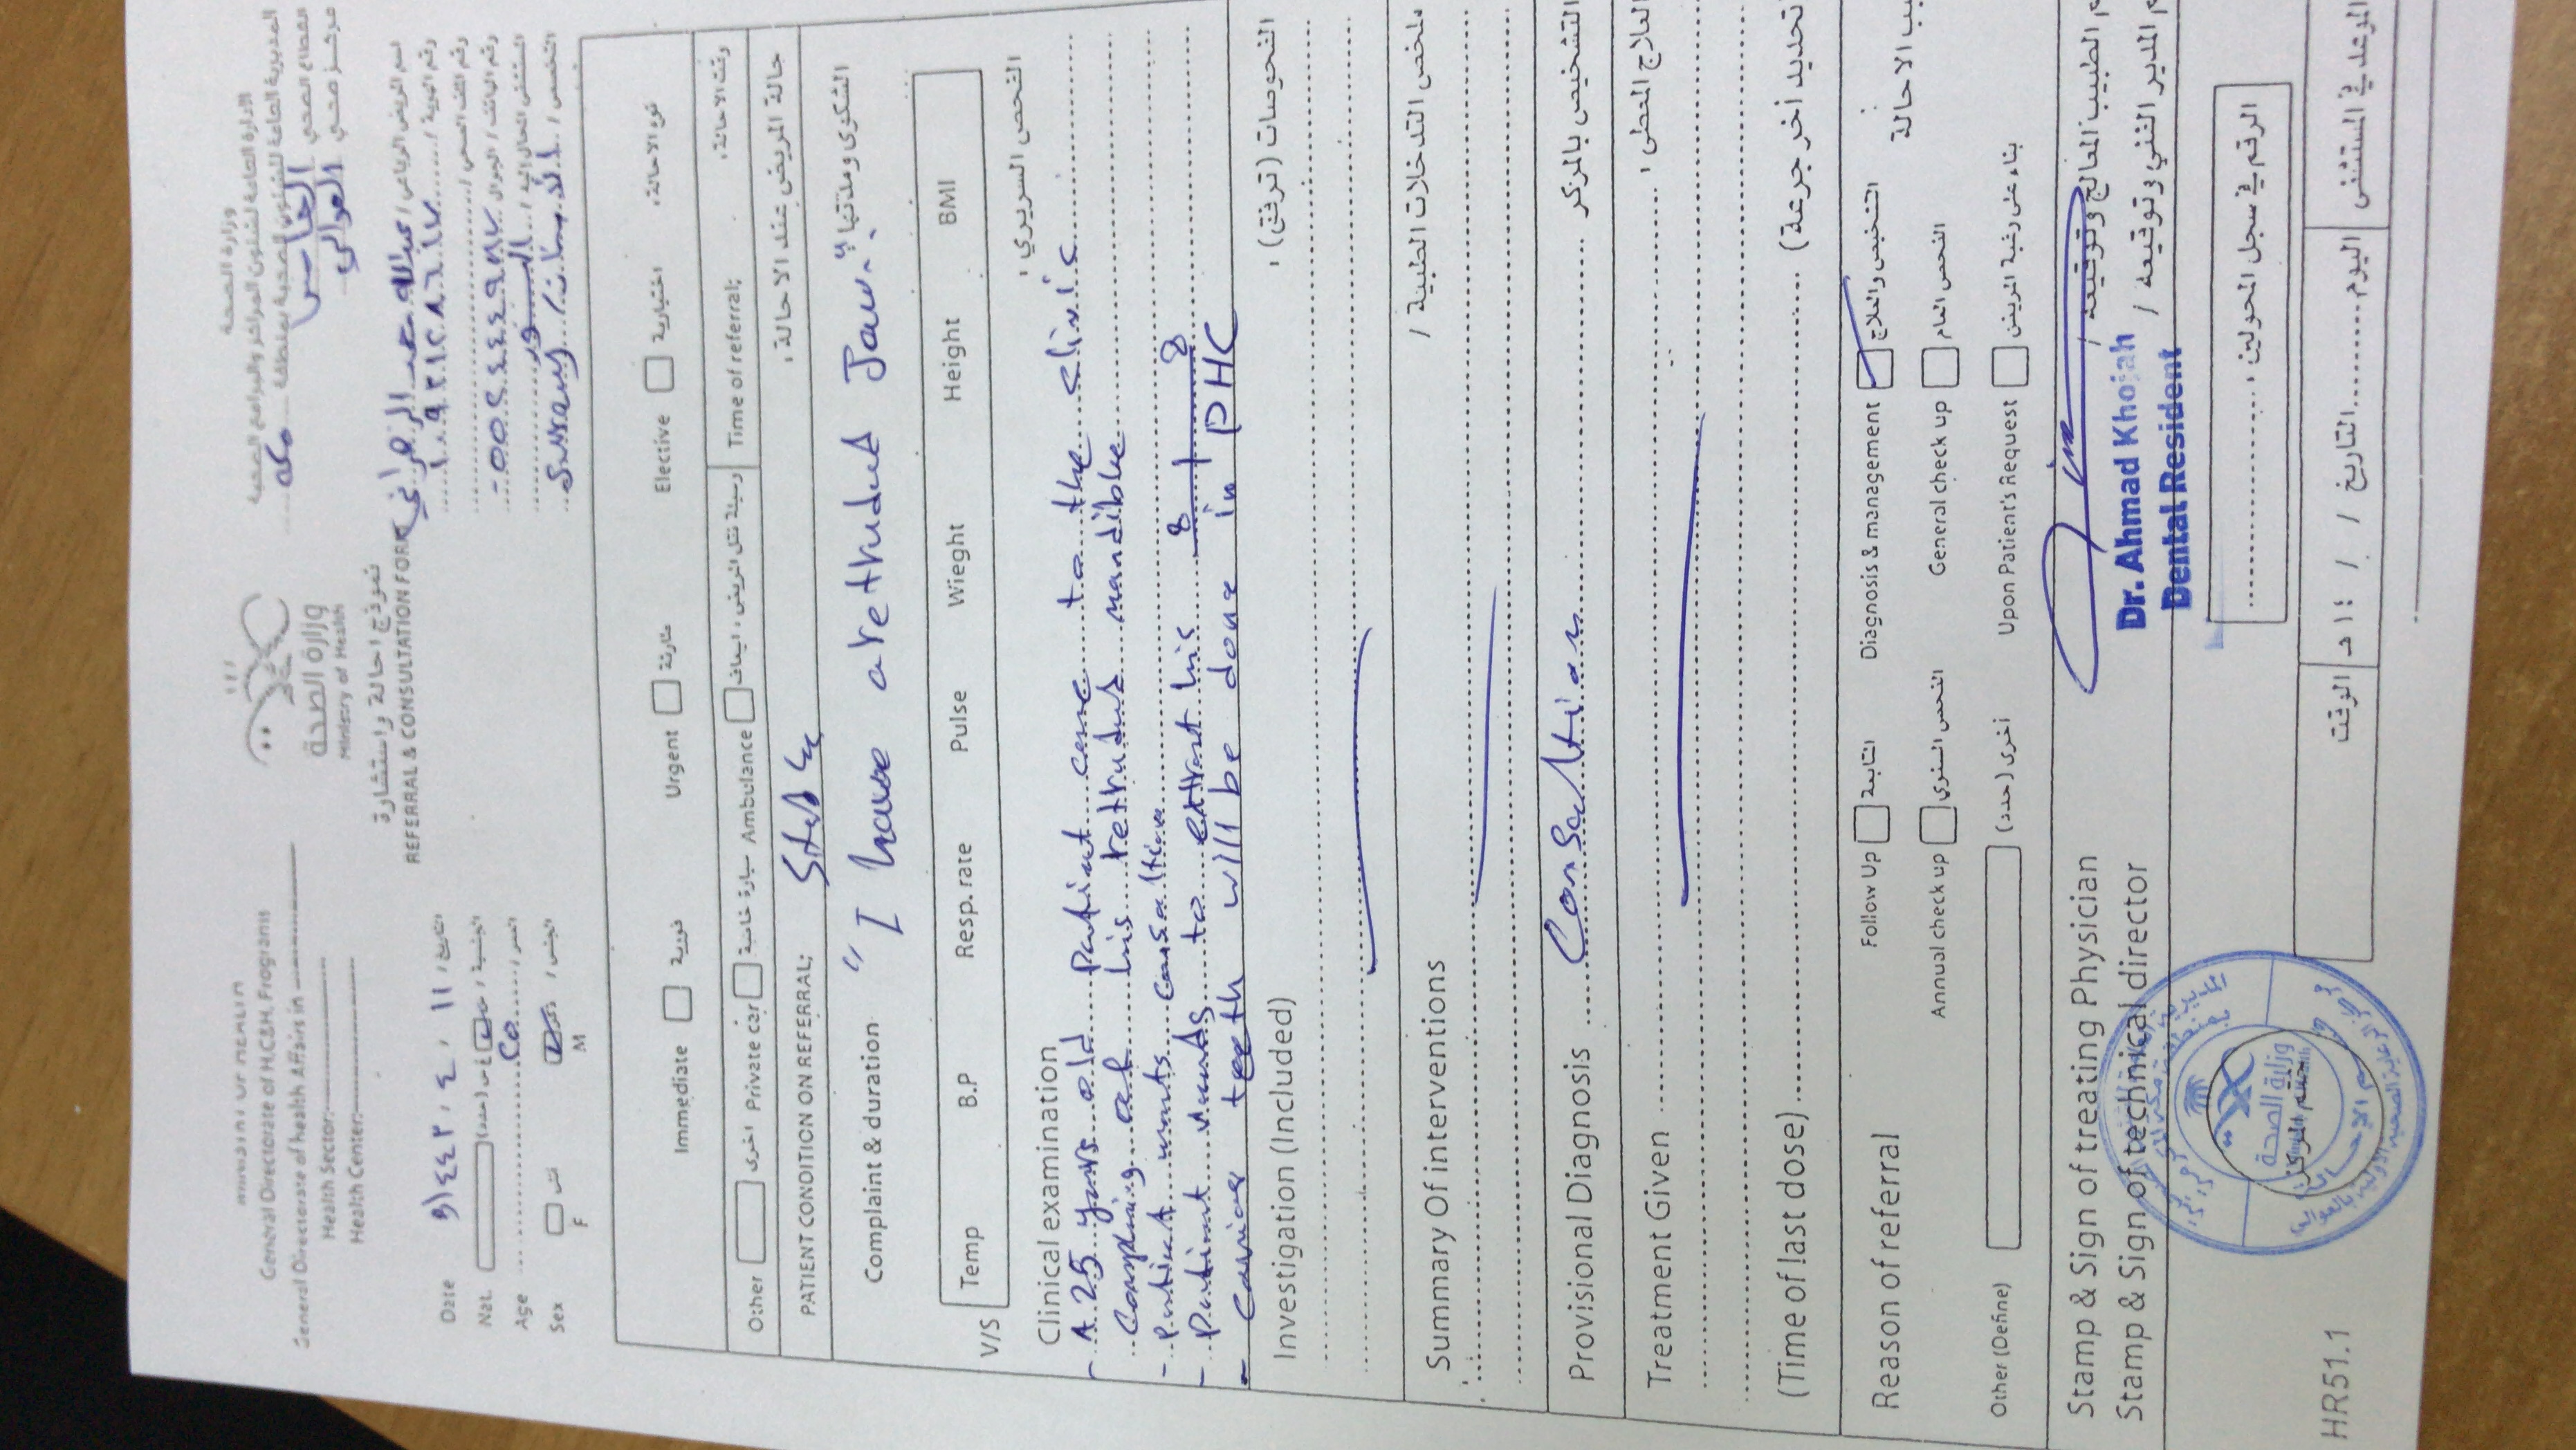 MINISTRY OF HEALTH
General Directorate of H.C&H. Programs
General Directorate of health Affairs in
Health Sector:
Health Center:
وزارة الصحة
Ministry of Health
نموذج احالة واستشارة
REFERRAL & CONSULTATION FORM
وزارة الصحة
الادارة العامة لشئون المراكز والبرامج الصحية
المديرية العامة للشئون الصحية بمنطقة مكه
القطاع الصحي
مركز صحي العوالي
اسم المريض الرباعي / عبدالله محمد الزهراني
رقم الهوية /
رقم الملف الصحي /
رقم الهاتف / الجوال
المستشفى المحال إليه / النور
التخصص / الاسنان / Surgery
Date ١١ . ٤ . ١٤٤٢ التاريخ /
Nat. الجنسية / س غ س (حدد)
Age ٢٥ العمر /
Sex F أنثى M ذكر الجنس /
Immediate فورية Urgent طارئة Elective اختيارية نوع الاحالة،
Other اخرى Private car سيارة خاصة Ambulance وسيلة نقل المريض، اسعاف Time of referral; وقت الاحالة،
PATIENT CONDITION ON REFERRAL; Stable حالة المريض عند الاحالة،
Complaint & duration "I have a retruded Jaw." الشكوى ومدتها
V/S Temp B.P Resp. rate Pulse Wieght Height BMI
Clinical examination الفحص السريري،
- A 25 years old patient came to the clinic
his retruded mandible
- patient wants
- patient to his 8 | 8
- teeth will be done in PHC
Investigation (Included) الفحوصات (ترفق)،
Summary Of interventions ملخص التدخلات الطبية /
Provisional Diagnosis Consaltion التشخيص بالمركز
Treatment Given العلاج المعطى،
(Time of last dose) تحديد أخر جرعة)
Reason of referral Follow Up المتابعة Diagnosis & management التشخيص والعلاج
Annual check up الفحص السنوي General check up الفحص العام
Other (Define) أخرى (حدد) Upon Patient's Request بناء على رغبة المريض
Stamp & Sign of treating Physician م الطبيب المعالج وتوقيعه /
Stamp & Sign of technical director م المدير الفني وتوقيعه /
Dr. Ahmad Khojah
Dental Resident
الرقم في سجل المحولين،
وزارة الصحة
ختم المركز
HR51.1
الموعد في المستشفى اليوم التاريخ / / ١٤ هـ الوقت